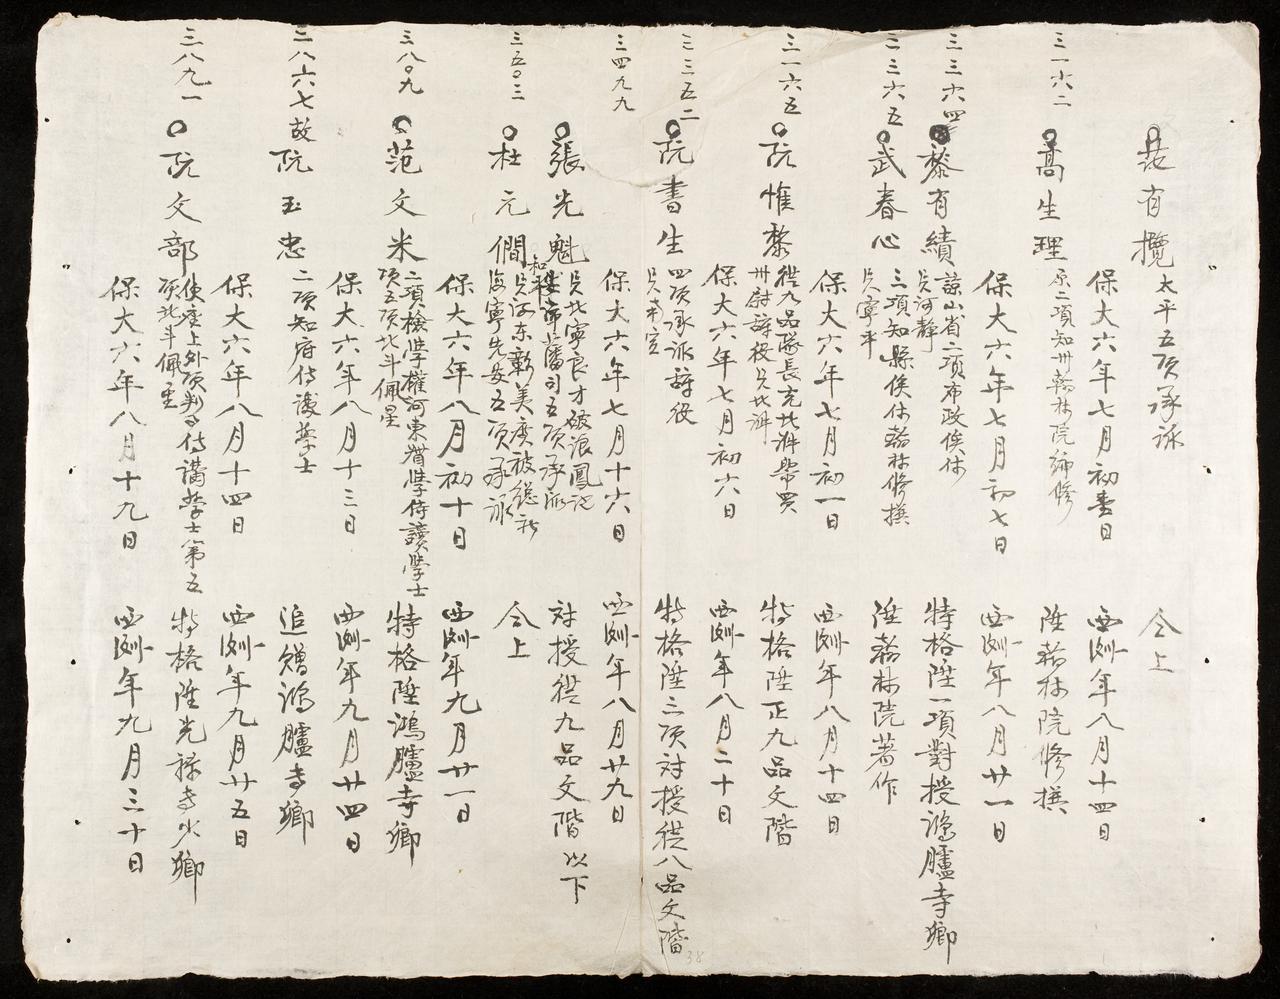 范有攬 太平五項承派 仝上
保大六年七月初壹日 西㴍年八月十四日
三一六二 高生理 原二項知州翰林院編修 陞翰林院修撰
保大六年七月初七日 西㴍年八月廿一日
三三六四 黎有績 諒山省二項布政侯休 貝河靜 特格陞一項對授鴻臚寺卿
三三六五 武春心 三項知縣侯休翰林修撰 貝寧平 陞翰林院著作
保大六年七月初一日 西㴍年八月十四日
三一六五 阮惟黎 從九品隊長充北 州尉辭役貝北 特格陞正九品文階
保大六年七月初六日 西㴍年八月二十日
三三五二 阮書生 四項承派辭役 貝南定 特格陞三項対授從八品文階
保大六年七月十六日 西㴍年八月廿九日
三四九九 張光魁 貝北寧良才 五項承派 対授從九品文階以下
三五〇三 杜元僩 貝河東彰美 五項承派 仝上
保大六年八月初十日 西㴍年九月廿一日
三八〇九 范文米 二項檢學權河東督學侍讀學士 項五項北斗佩星 特格陞鴻臚寺卿
保大六年八月十三日 西㴍年九月廿四日
三八六七 故 阮玉忠 二項知府侍讀學士 追贈鴻臚寺卿
保大六年八月十四日 西㴍年九月廿五日
三八九一 阮文部 使座上外項判事侍講學士第五 項北斗佩星 特格陞光祿寺少卿
保大六年八月十九日 西㴍年九月三十日
38